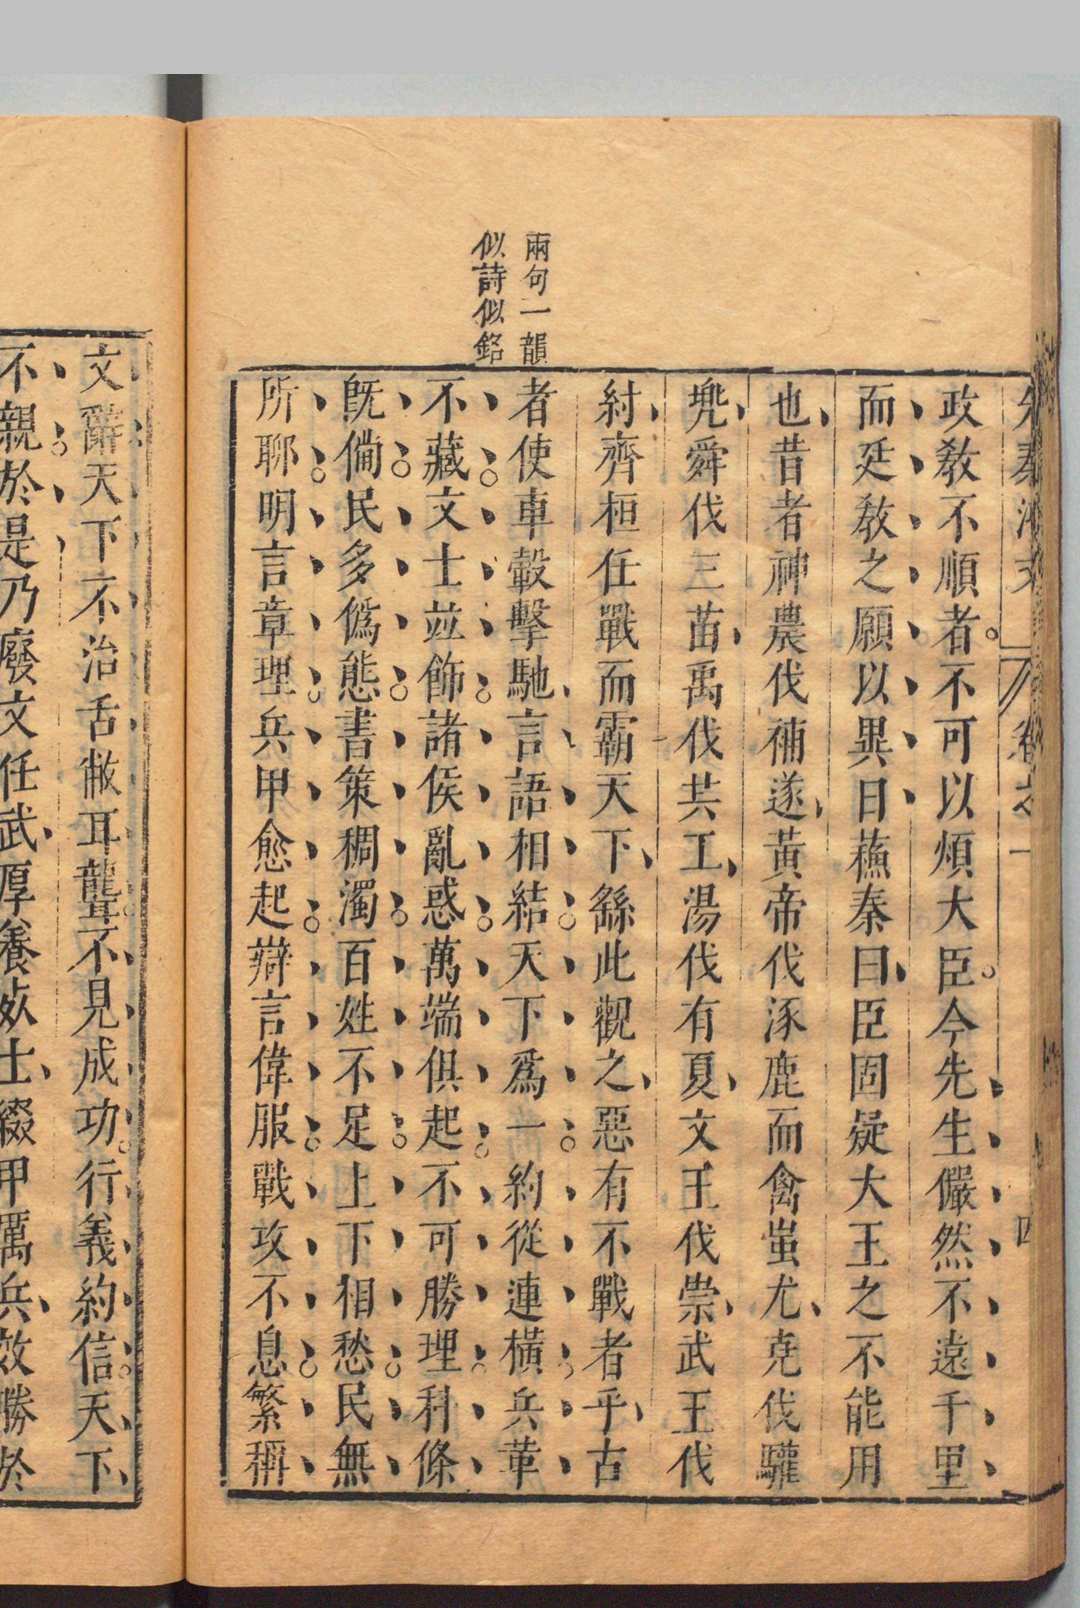 先秦鴻文
卷之一
四
政敎不順者不可以煩大臣今先生儼然不遠千里
而廷敎之願以異日蘓秦曰臣固疑大王之不能用
也昔者神農伐補遂黃帝伐涿鹿而禽蚩尤堯伐驩
兠舜伐三苗禹伐共工湯伐有夏文王伐崇武王伐
紂齊桓任戰而霸天下繇此觀之惡有不戰者乎古
者使車轂擊馳言語相結天下爲一約從連橫兵革
不藏文士竝飾諸侯亂惑萬端俱起不可勝理科條
旣備民多僞態書策稠濁百姓不足上下相愁民無
所聊明言章理兵甲愈起辯言偉服戰攻不息繁稱
兩句一韻
似詩似銘
文辭天下不治舌敝耳聾不見成功行義約信天下
不親於是乃廢文任武厚養死士綴甲厲兵效勝於